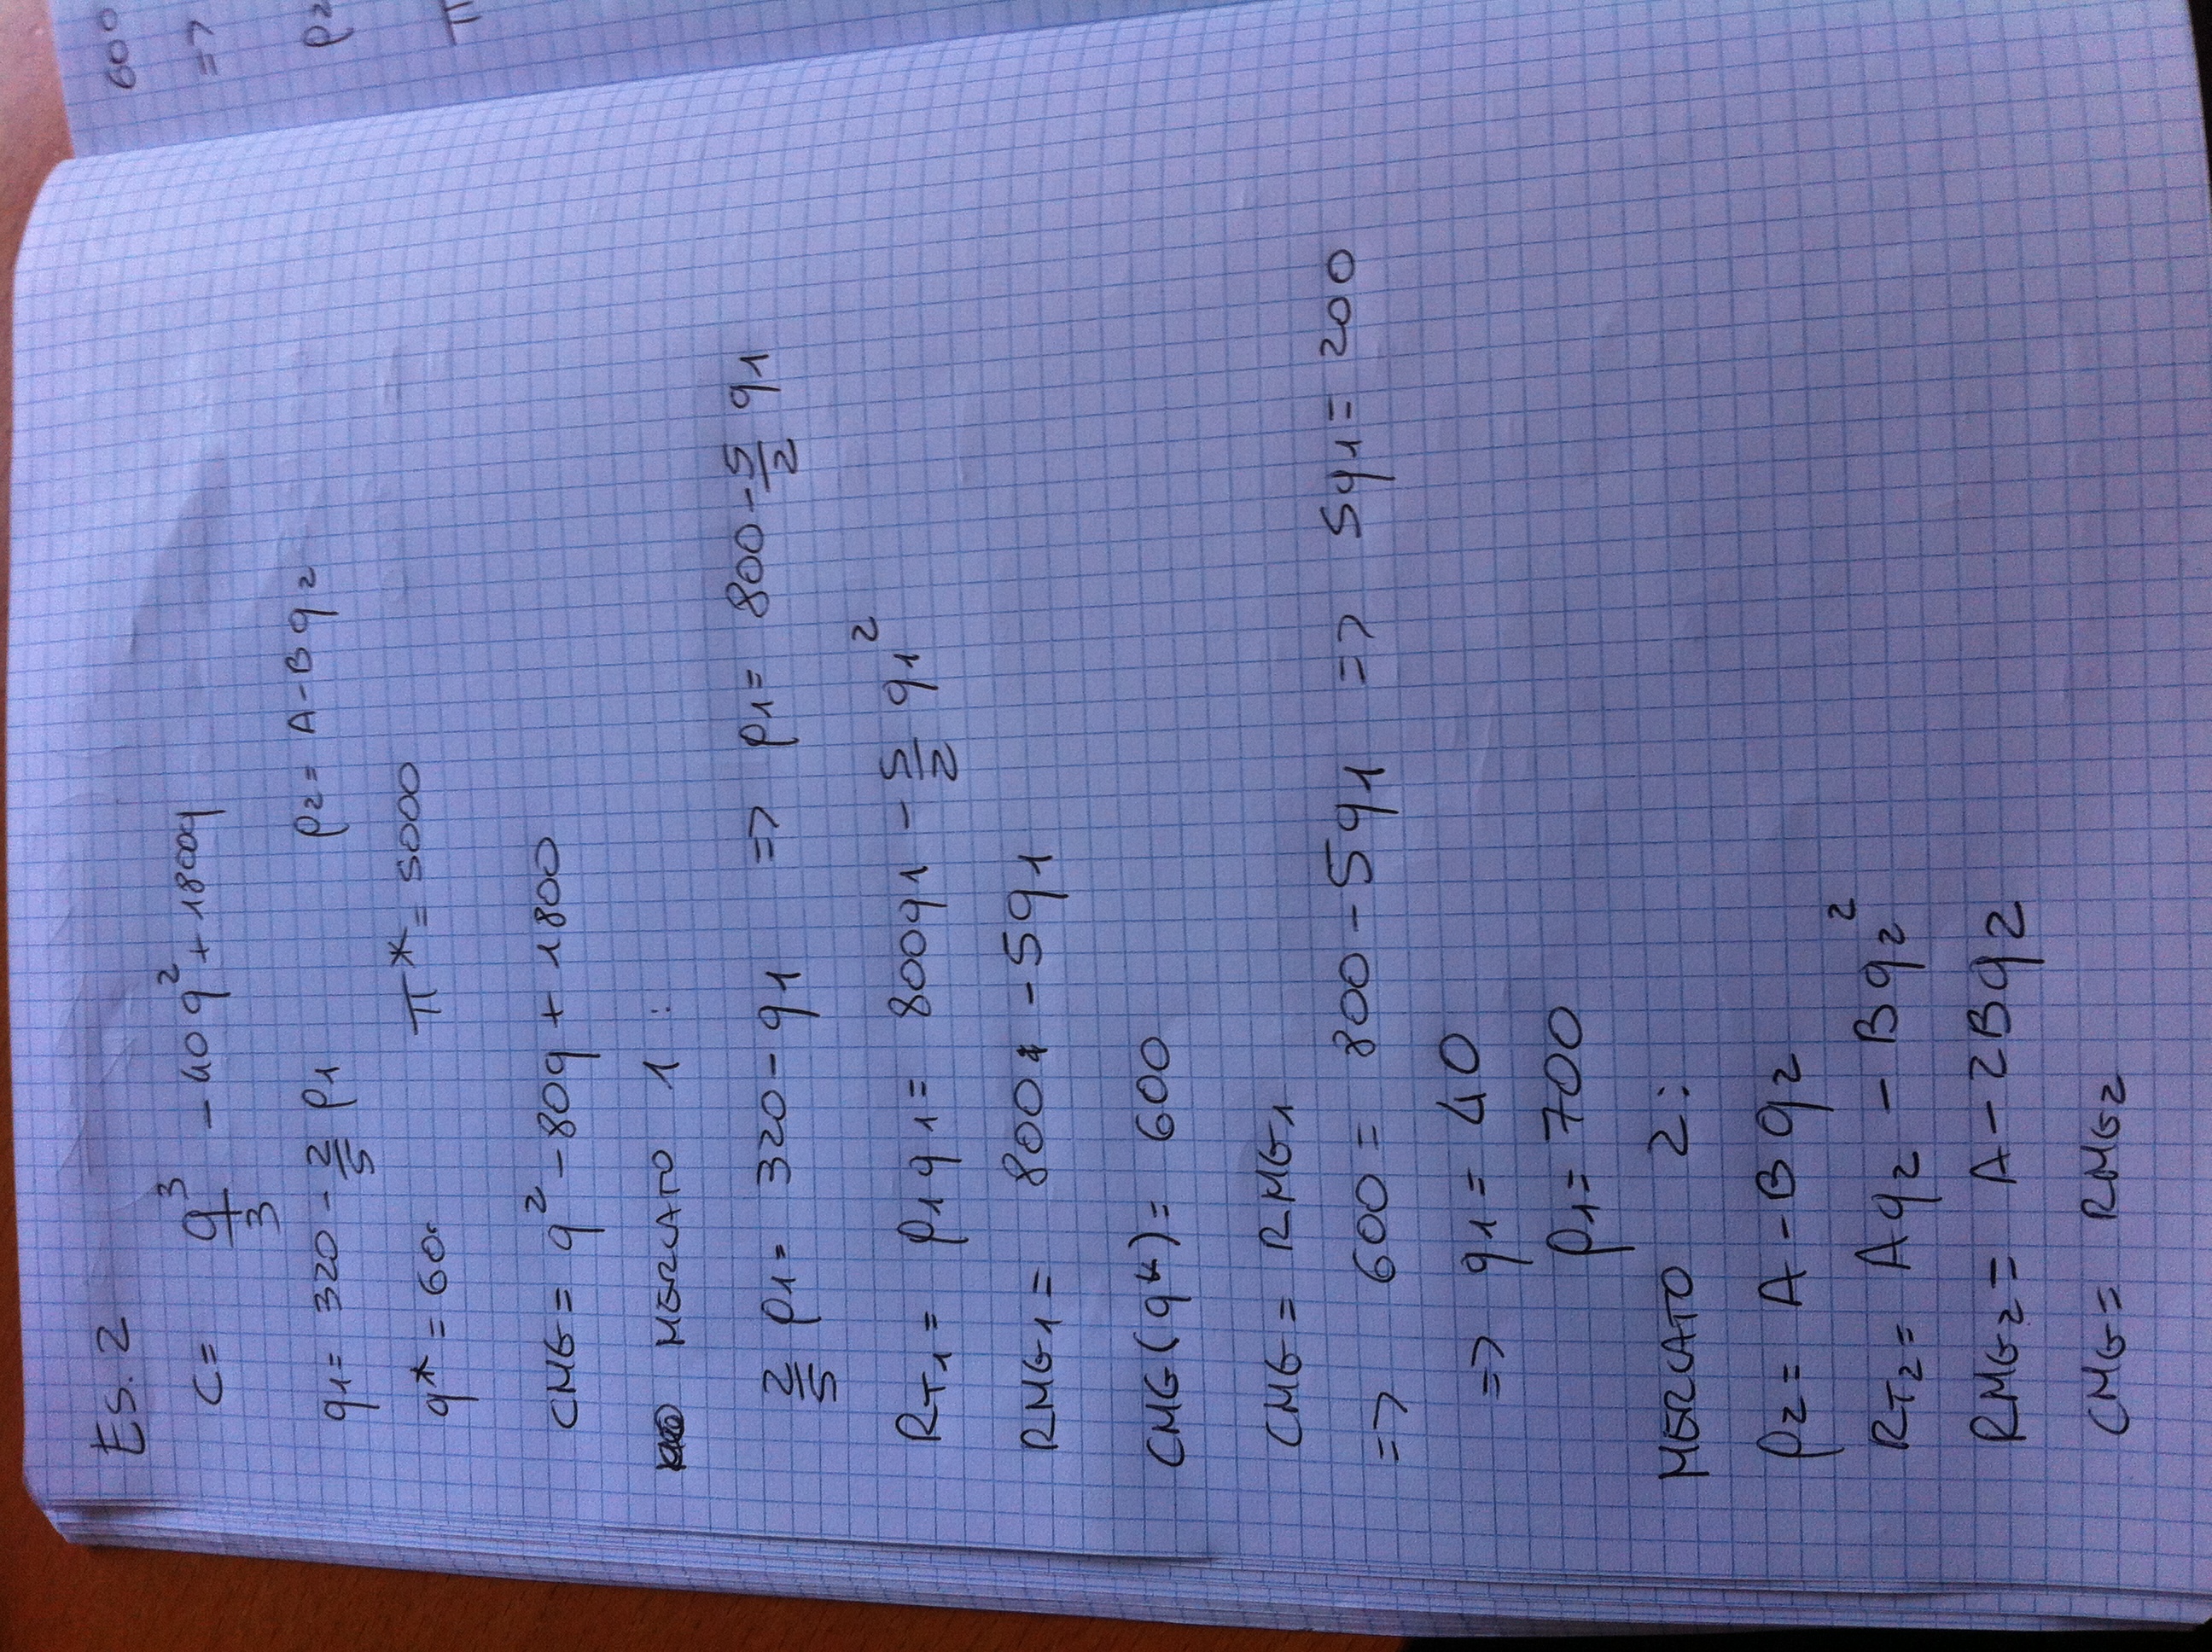 Es. 2
C = q³/3 - 40q² + 1800q
q1 = 320 - 2/5 p1 p2 = A - Bq2
q* = 60 π* = 5000
CMG = q² - 80q + 1800
MERCATO 1:
2/5 p1 = 320 - q1 => p1 = 800 - 5/2 q1
RT1 = p1q1 = 800q1 - 5/2 q1²
RMG1 = 800 - 5q1
CMG(q*) = 600
CMG = RMG1
=> 600 = 800 - 5q1 => 5q1 = 200
=> q1 = 40
p1 = 700
MERCATO 2:
p2 = A - Bq2
RT2 = Aq2 - Bq2²
RMG2 = A - 2Bq2
CMG = RMG2
600
=>
p2
π